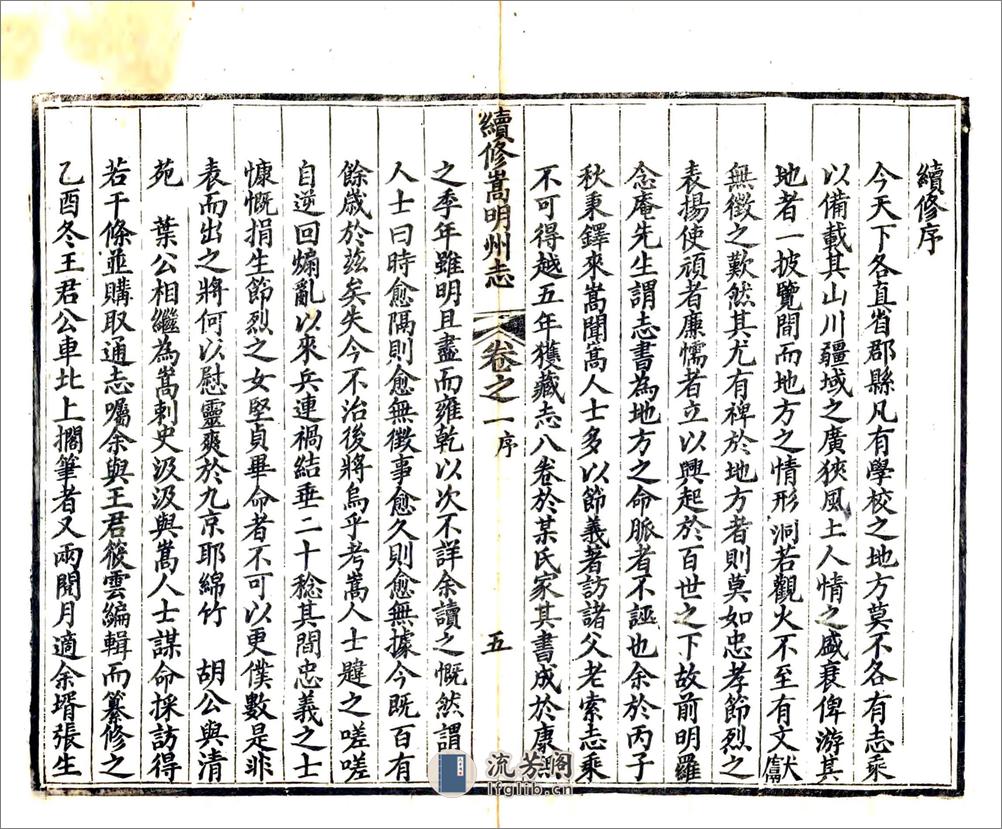 續修序
今天下各直省郡縣凡有學校之地方莫不各有志乘
以備載其山川疆域之廣狹風土人情之盛衰俾游其
地者一披覽間而地方之情形洞若觀火不至有文獻
無徵之歎然其尤有裨於地方者則莫如忠孝節烈之
表揚使頑者廉懦者立以興起於百世之下故前明羅
念庵先生謂志書為地方之命脈者不誣也余於丙子
秋秉鐸來嵩聞嵩人士多以節義著訪諸父老索志乘
不可得越五年獲藏志八卷於某氏家其書成於康熙
續修嵩明州志
卷之一
序
五
之季年雖明且盡而雍乾以次不詳余讀之慨然謂
人士曰時愈隔則愈無徵事愈久則愈無據今既百有
餘歲於茲矣失今不治後將烏乎考嵩人士韙之嗟嗟
自逆回煽亂以來兵連禍結垂二十稔其間忠義之士
慷慨捐生節烈之女堅貞畢命者不可以更僕數是非
表而出之將何以慰靈爽於九京耶綿竹 胡公與清
苑 葉公相繼為嵩刺史汲汲與嵩人士謀命採訪得
若干條並購取通志囑余與王君筱雲編輯而纂修之
乙酉冬王君公車北上擱筆者又兩閱月適余壻張生
流芳阁
lfglib.cn